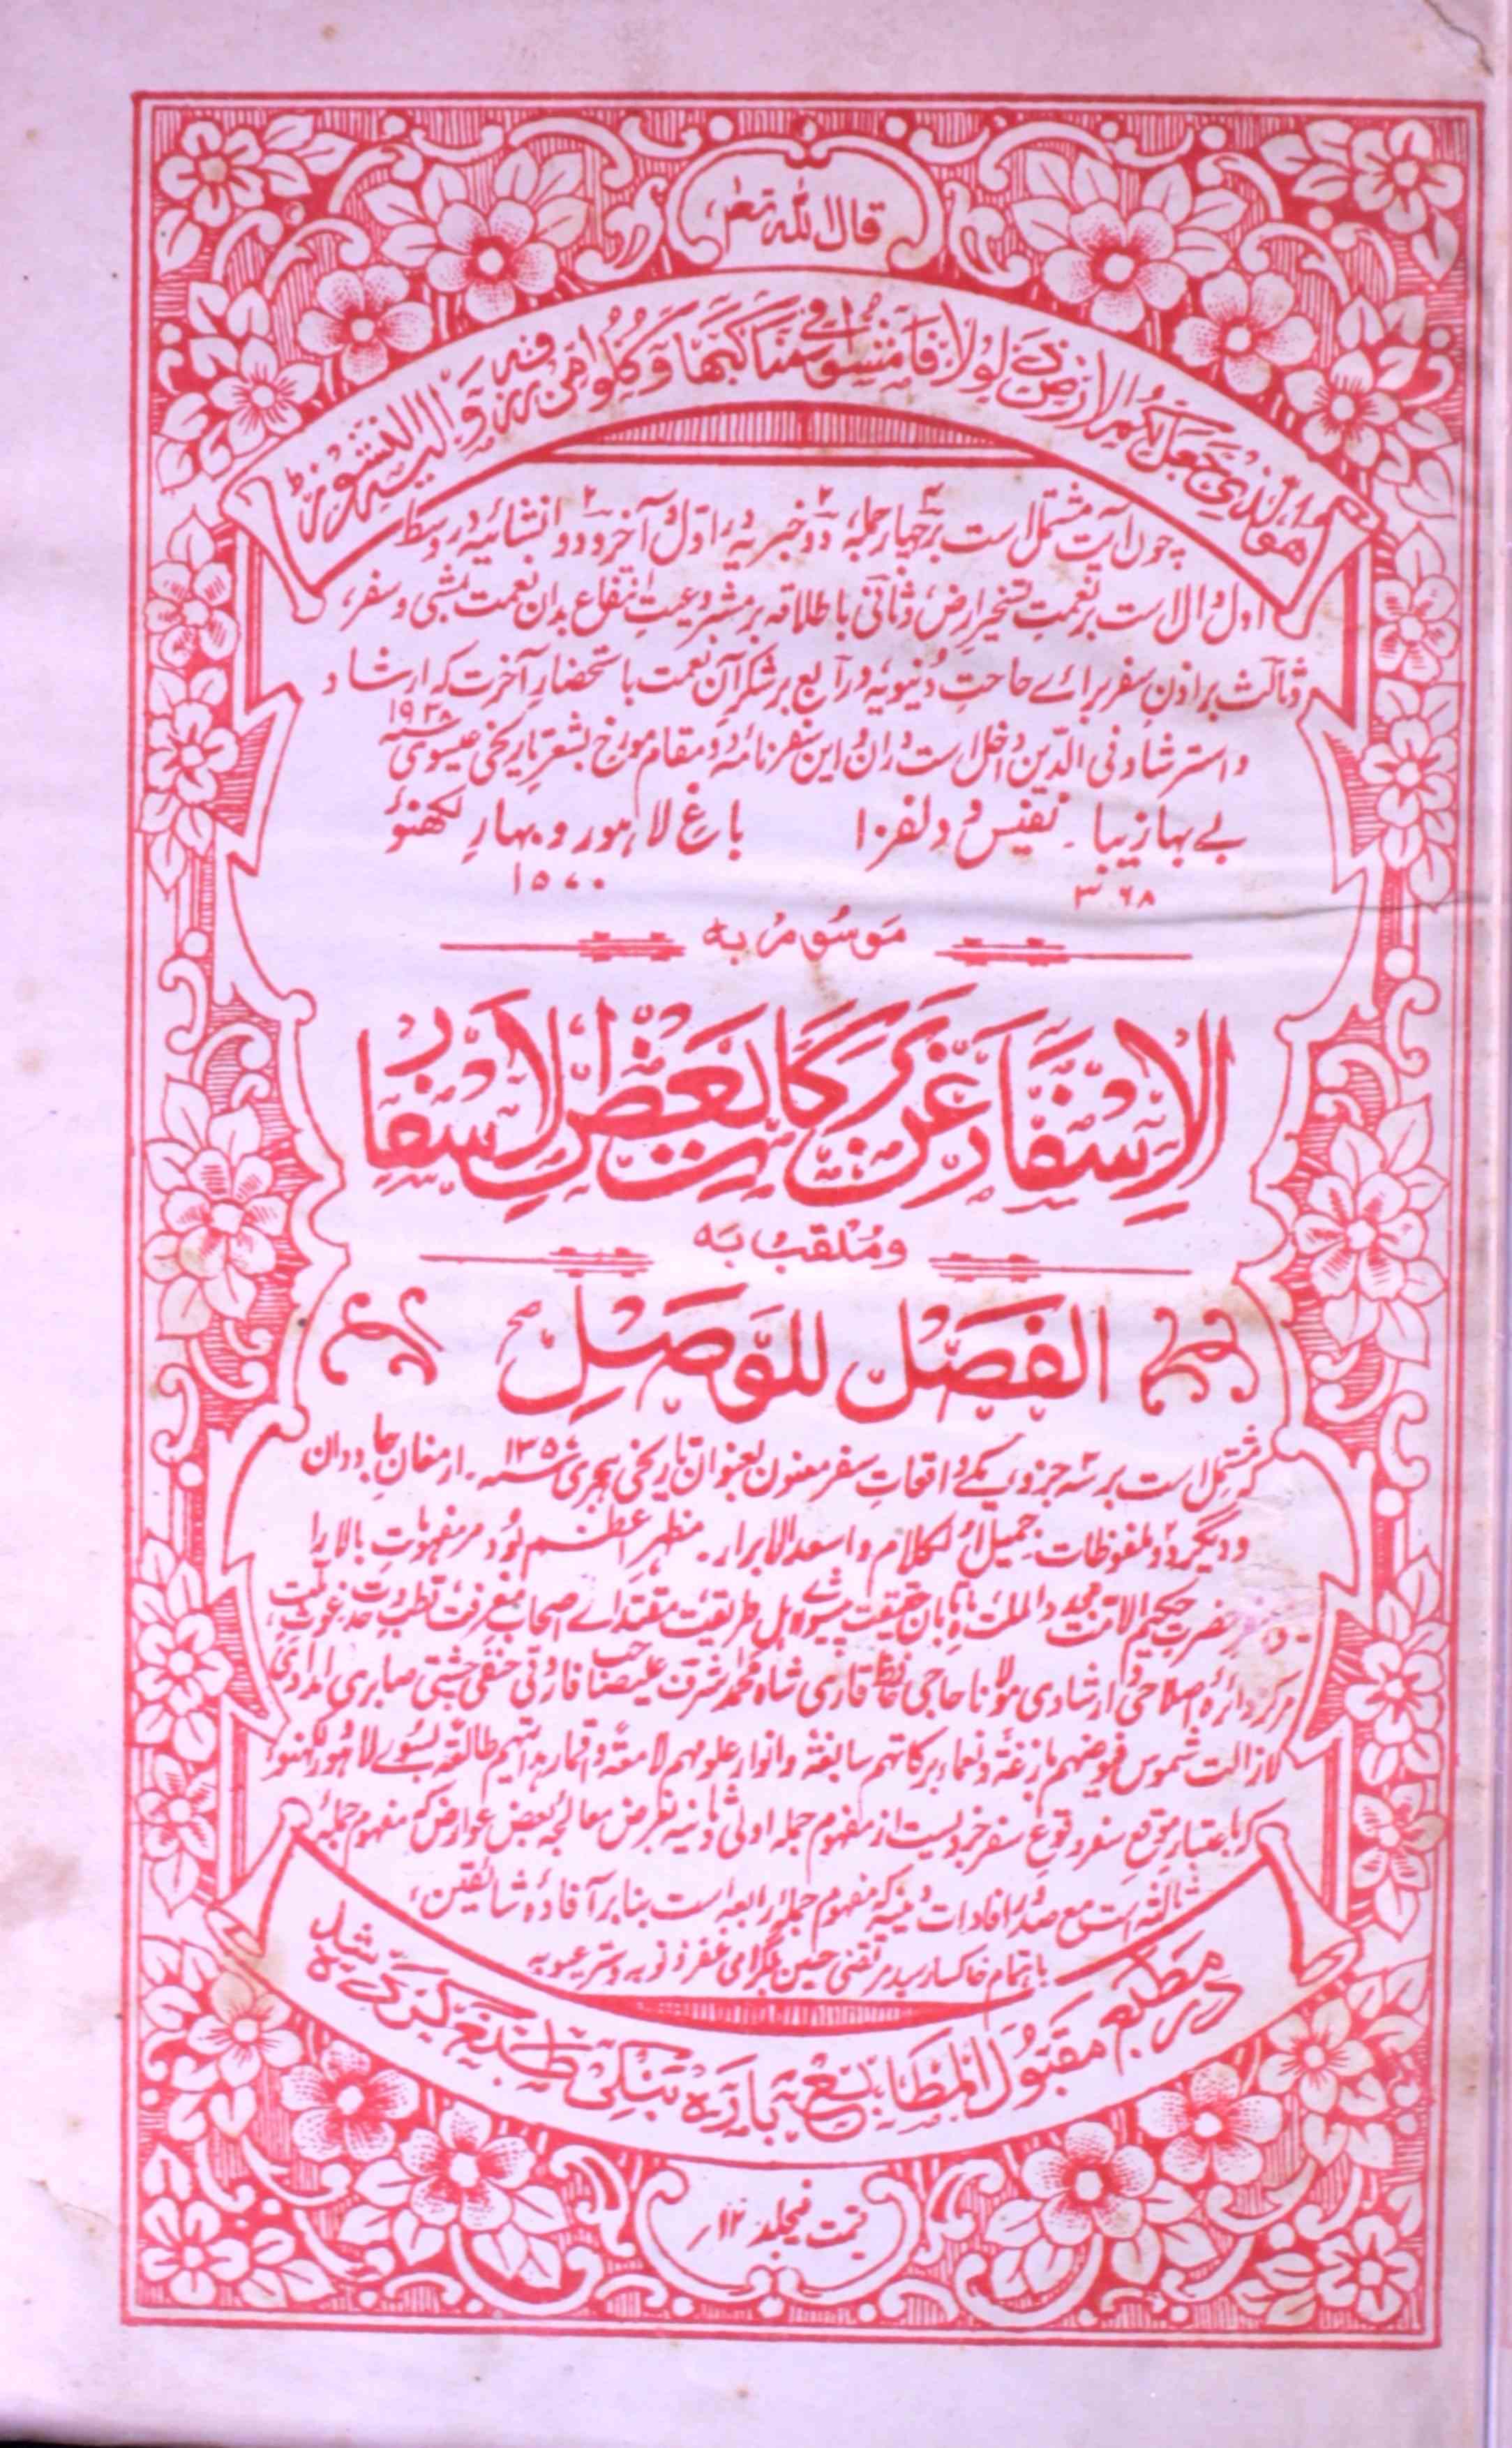 قال اللہ تعالیٰ
هُوَ الَّذِي جَعَلَ لَكُمُ الْاَرْضَ ذَلُوْلًا فَامْشُوْا فِيْ مَنَاكِبِهَا وَكُلُوْا مِنْ رِزْقِهٖ وَاِلَيْهِ النُّشُوْرُ
چوں آیت مشتمل است بر چہار جملہ، دو خبریہ در اول و آخر و دو انشائیہ در وسط
اول دال است بر نعمت تسخیر ارض، و ثانی باطلاقہ بر مشروعیت انتفاع بدان نعمت بمشی و سفر،
و ثالث بر اذن سفر برائے حاجت دنیویہ و رابع بر شکر آن نعمت باستحضار آخرت کہ ارشاد
و استرشاد فی الدین داخل است دران و این سفرنامہ دو مقام مورخ بشعر تاریخی عیسوی ۱۹۳۸
بے بہا زیبا ۔ نفیس و دلفزا باغ لاہور و بہار لکھنؤ
۳۶۸ ۱۵۷۰
موسوم بہ
الاِسفار عن بركات بعض الاَسفار
و ملقب بہ
الفصل للوصل
کہ مشتمل است بر سہ جزو، یکے واقعات سفر معنون بعنوان تاریخی ہجری ۱۳۵۷ ۔ ارمغان جاودان
و دیگر دو ملفوظات جمیل الکلام و اسعد الابرار ۔ مظہر اعظم بود مر مفہومات بالا را
حضرت حکیم الامت مجدد الملت حقیقت پیشوائے اہل طریقت مقتدائے اصحاب معرفت قطب
مرکز دائرہ اصلاحی و ارشادی مولانا حاجی حافظ قاری شاہ محمد اشرف علی صاحب فاروقی حنفی چشتی صابری امدادی
لازالت شموس فیوضہم بازغۃ و نعماء برکاتہم سابغۃ و انوار علومہم لامعۃ و اقمار ہدایتہم طالعۃ بسوئے لاہور و لکھنؤ
کہ باعتبار موقع سفر و وقوع سفر خبردیست از مفہوم جملہ اولی و ثانیہ بغرض معالجہ بعض عوارض کہ مفہوم جملہ
ثالثہ است مع صدور افادات دینیہ کہ مفہوم جملہ رابعہ است بنا بر افادہ شائقین،
باہتمام خاکسار سید مرتضی حسین بلگرامی غفر ذنوبہ و ستر عیوبہ
در مطبع مقبول المطابع بارہ بنکی طبع گردید
قیمت فیجلد ۱۲؍